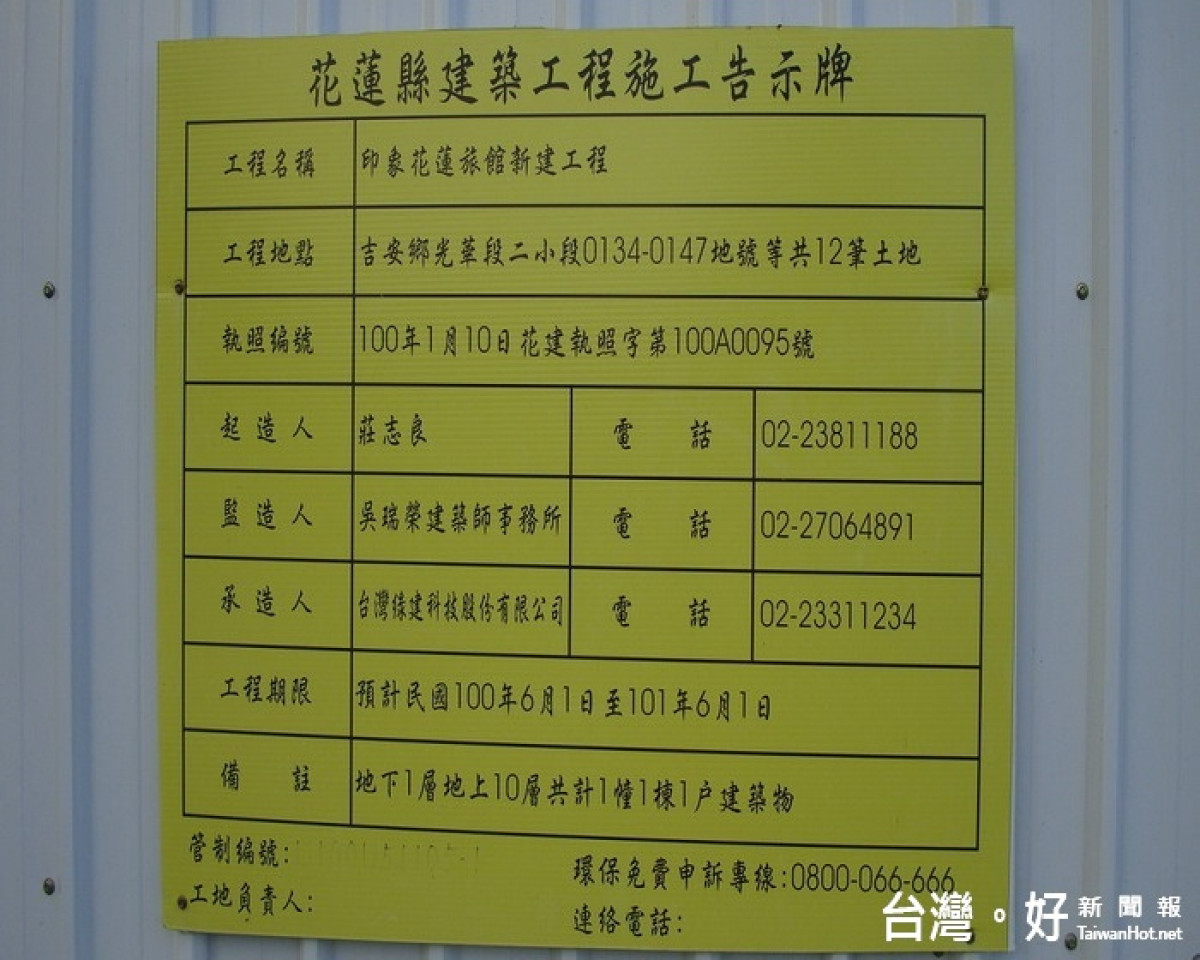 花蓮縣建築工程施工告示牌
工程名稱 印象花蓮旅館新建工程
工程地點 吉安鄉光華段二小段0134-0147地號等共12筆土地
執照編號 100年1月10日花建執照字第100A0095號
起造人 莊志良 電話 02-23811188
監造人 吳瑞榮建築師事務所 電話 02-27064891
承造人 台灣綠建科技股份有限公司 電話 02-23311234
工程期限 預計民國100年6月1日至101年6月1日
備註 地下1層地上10層共計1幢1棟1戶建築物
管制編號:
環保免費申訴專線:0800-066-666
工地負責人:
連絡電話:
台灣。好 新聞報
TaiwanHot.net